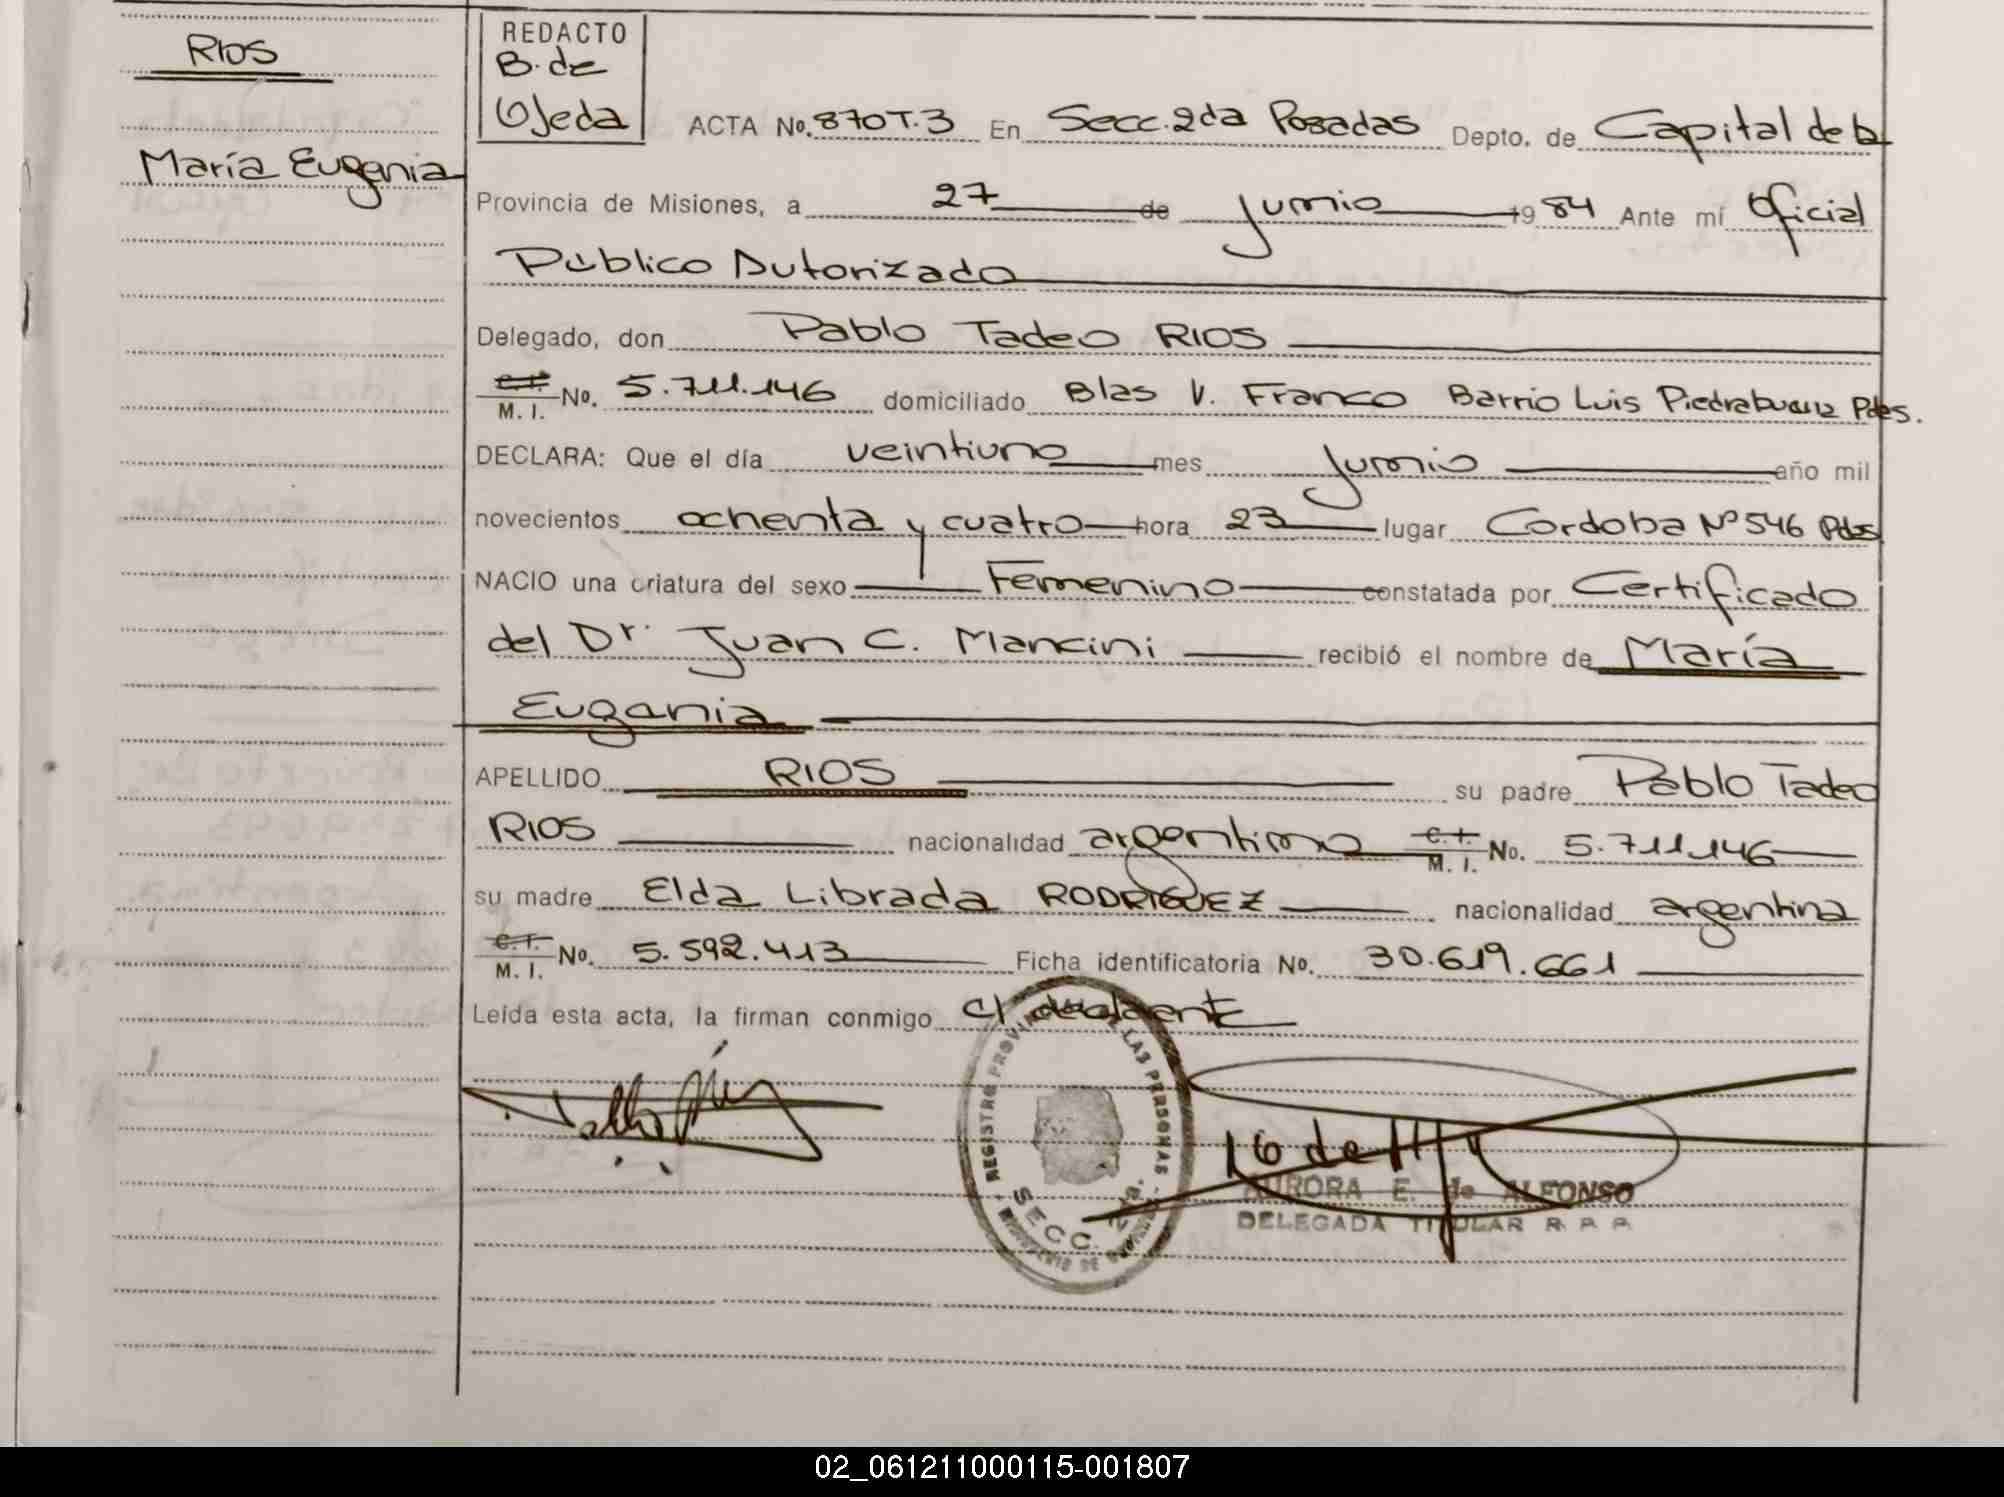 RIOS
María Eugenia
REDACTO
B. de
Ojeda
ACTA No. 870 T.3 En Secc. 2da Posadas Depto. de Capital de la
Provincia de Misiones, a 27 de junio 1984 Ante mí Oficial
Público Autorizado
Delegado, don Pablo Tadeo RIOS
C.I.
M. I. No. 5.711.146 domiciliado Blas V. Franco Barrio Luis Piedrabuena Pdas.
DECLARA: Que el día veintiuno mes junio año mil
novecientos ochenta y cuatro hora 23 lugar Cordoba Nº 546 Pdas
NACIO una criatura del sexo Femenino constatada por Certificado
del Dr. Juan C. Mancini recibió el nombre de María
Eugenia
APELLIDO RIOS su padre Pablo Tadeo
RIOS nacionalidad argentino C.I.
M. I. No. 5.711.146
su madre Elda Librada RODRIGUEZ nacionalidad argentina
C.I.
M. I. No. 5.592.413 Ficha identificatoria No. 30.619.661
Leída esta acta, la firman conmigo el declarante
REGISTRO PROVINCIAL DE LAS PERSONAS
SECC. 2da.
AURORA E. de ALFONSO
DELEGADA TITULAR R. P. P.
02_061211000115-001807